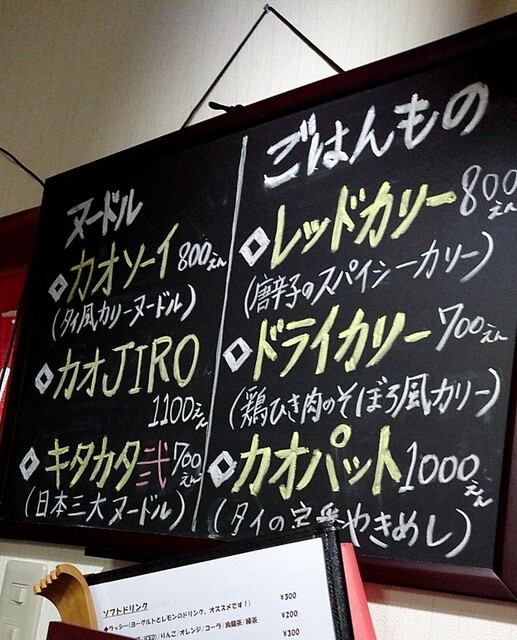 ヌードル
◇カオソーイ 800えん
(タイ風カリーヌードル)
◇カオJIRO
1100えん
◇キタカタ弐 700えん
(日本三大ヌードル)
ごはんもの
◇レッドカリー 800えん
(唐辛子のスパイシーカリー)
◇ドライカリー 700えん
(鶏ひき肉のそぼろ風カリー)
◇カオパット 1000えん
(タイの定番やきめし)
ソフトドリンク
◆ラッシー(ヨーグルトとレモンのドリンク、オススメです!) ¥300
(ICED)/りんご/オレンジ/コーラ/烏龍茶/緑茶 ¥200
¥300